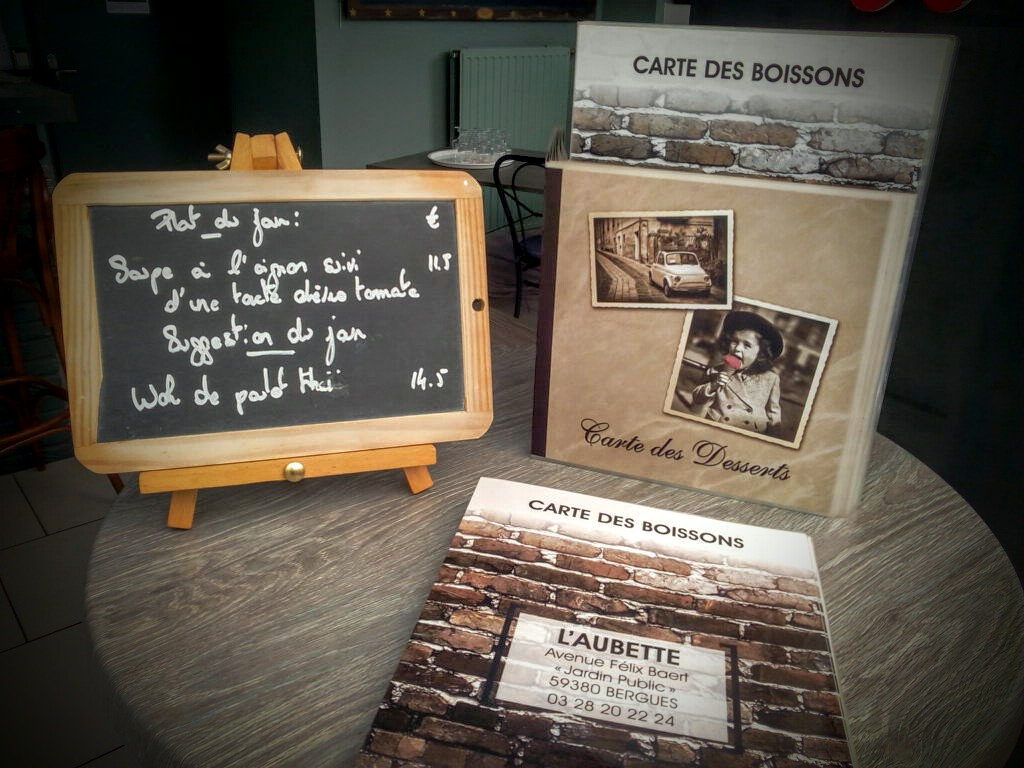 Plat du jour: €
Soupe à l'oignon suivi 11.5
d'une tarte chèvre tomate
Suggestion du jour
Wok de poulet thaï 14.5
CARTE DES BOISSONS
Carte des Desserts
CARTE DES BOISSONS
L'AUBETTE
Avenue Félix Baert
« Jardin Public »
59380 BERGUES
03 28 20 22 24